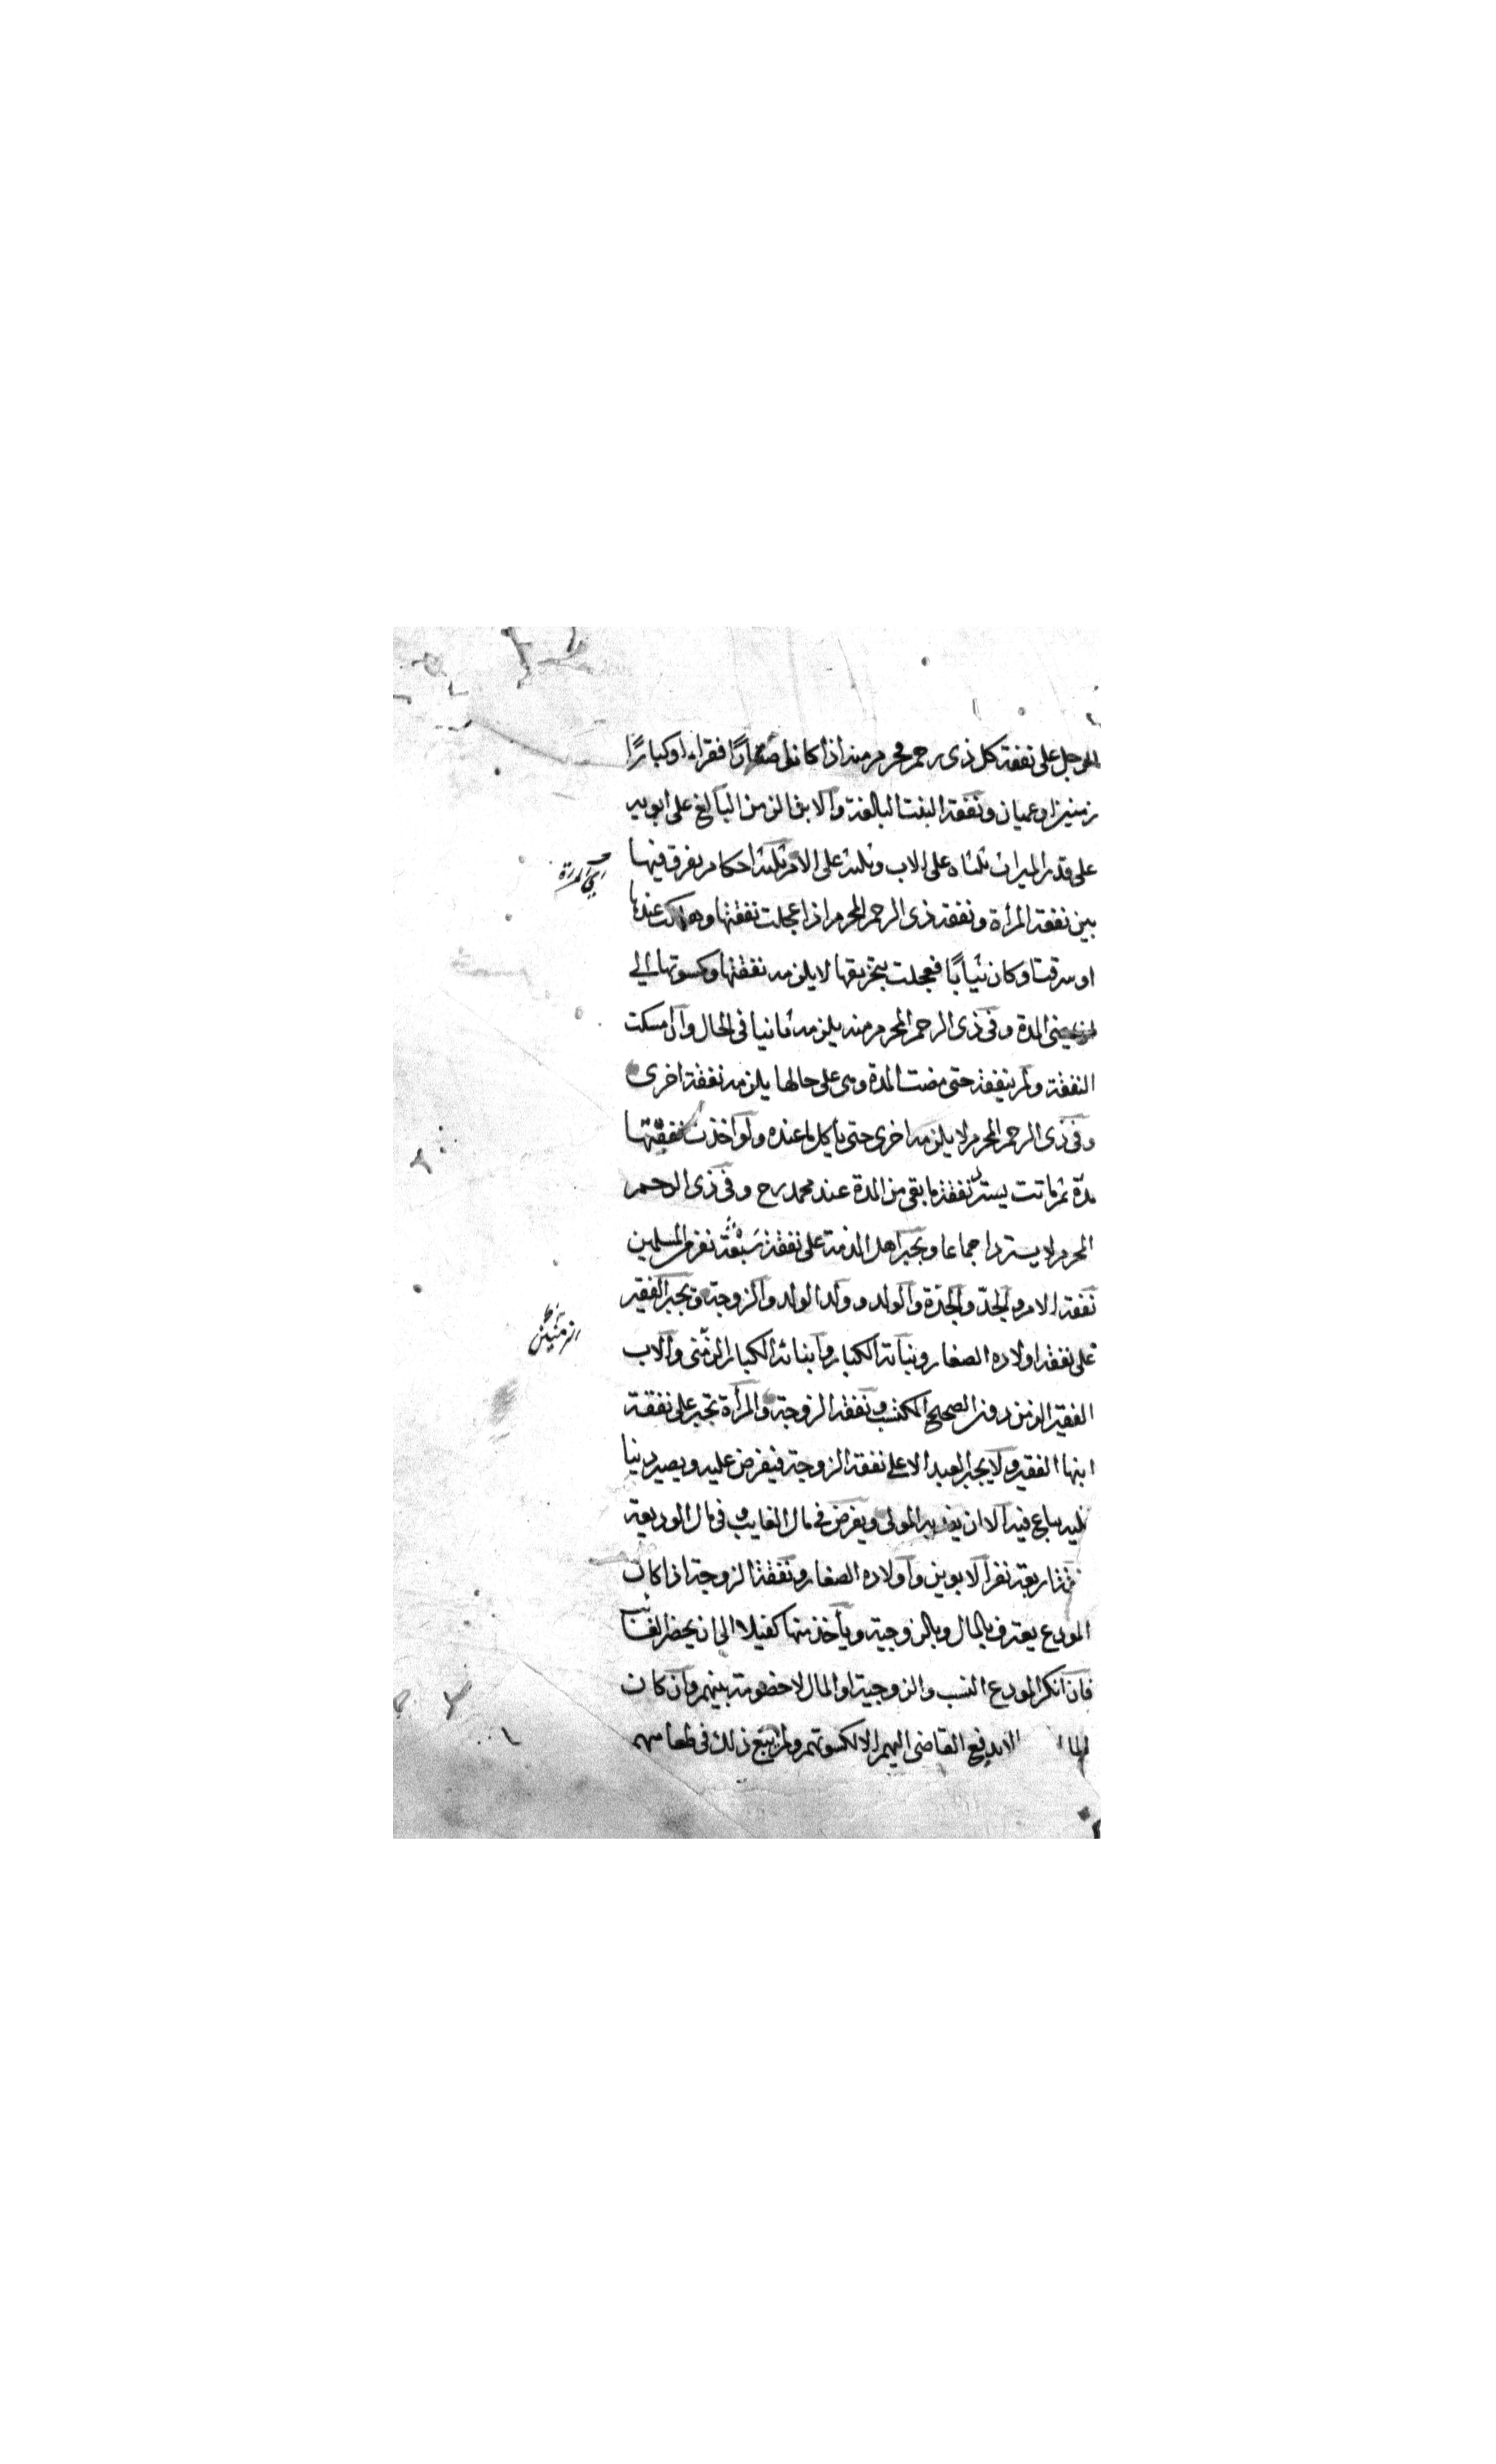 الرجل على نفقة كل ذى رحم محرم منه اذا كانوا صغارًا فقراء او كبارًا
زمنين او عميان ونفقة البنت البالغة والابن الزمن البالغ على ابويه
على قدر الميراث ثلثاه على الاب وثلث على الام ثلثة احكام يفرق فيها
بين نفقة المرأة ونفقة ذى الرحم المحرم اذا عجلت نفقتها وهلكت عندها
او سرقت او كان ثيابًا فعجلت بتخريقها لا يلزمه نفقتها وكسوتها الى
مضى المدة وفى ذى الرحم المحرم منه يلزمه ثانيا فى الحال وان امسكت
النفقة ولم ينفقه حتى مضت المدة وهى على حالها يلزمه نفقة اخرى
وفى ذى الرحم المحرم لا يلزمه اخرى حتى يأكل ما عنده ولو اخذت نفقتها
مدّة ثم ماتت يسترد نفقة ما بقى من المدة عند محمد رح وفى ذى الرحم
المحرم لا يسترد اجماعا ويجبر اهل الذمة على نفقة سبعة نفر من المسلمين
نفقة الام والجدّ والجدّة والولد وولد الولد والزوجة ويجبر الفقير
على نفقة اولاده الصغار وبناته الكبار وابنائه الكبار الزمنى والاب
الفقير الزمن دون الصحيح المكتسب ونفقة الزوجة والمرأة تجبر على نفقة
ابنها الفقير ولا يجبر العبد الا على نفقة الزوجة فيفرض عليه ويصير دينا
عليه يباع فيه الا ان يفديه المولى ويفرض فى مال الغايب وفى مال الوديعة
نفقة اربعة نفر الابوين واولاده الصغار ونفقة الزوجة اذا كان
المودع يعترف بالمال وبالزوجية ويأخذ منها كفيلا الى ان يحضر الغائب
فان انكر المودع النسب والزوجية او المال لا خصومة بينهم وان كان
الا يدفع القاضى اليهم الا لكسوتهم ولم يبع ذلك فى طعامهم
اى المرأة